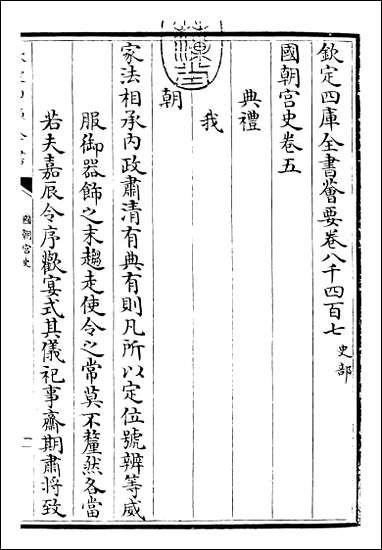 欽定四庫全書薈要卷八千四百七 史部
國朝宮史卷五
典禮
我
朝
家法相承內政肅清有典有則凡所以定位號辨等威
服御器飾之末趨走使令之常莫不釐然各當
若夫嘉辰令序歡宴式其儀祀事齋期肅將致
國朝宮史